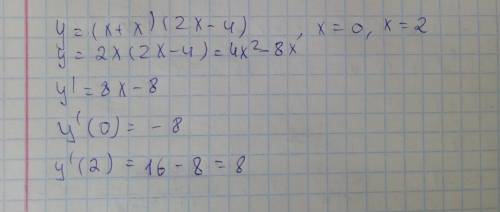 y = (x + x)(2x - 4), x = 0, x = 2
y = 2x(2x - 4) = 4x² - 8x
y' = 8x - 8
y'(0) = - 8
y'(2) = 16 - 8 = 8